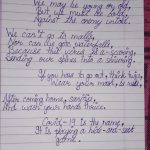 We may be young or old,
But we must be bold,
Against the enemy called.
We can't go to malls,
Nor can we see waterfalls,
Because that virus is a-scaring,
Sending our spines into a shivering.
If you have to go out, think twice,
Wear your mask, be wise.
After coming home, sanitize,
And wash your hands thrice.
Covid-19 is the name,
It is playing a hide-and-seek
game.